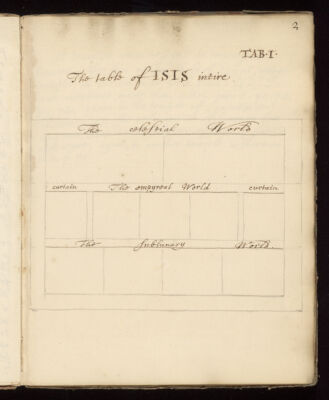 2
TAB·I·
The table of ISIS intire
The celestial World
curtain The empyreal World curtain
The sublunary World.